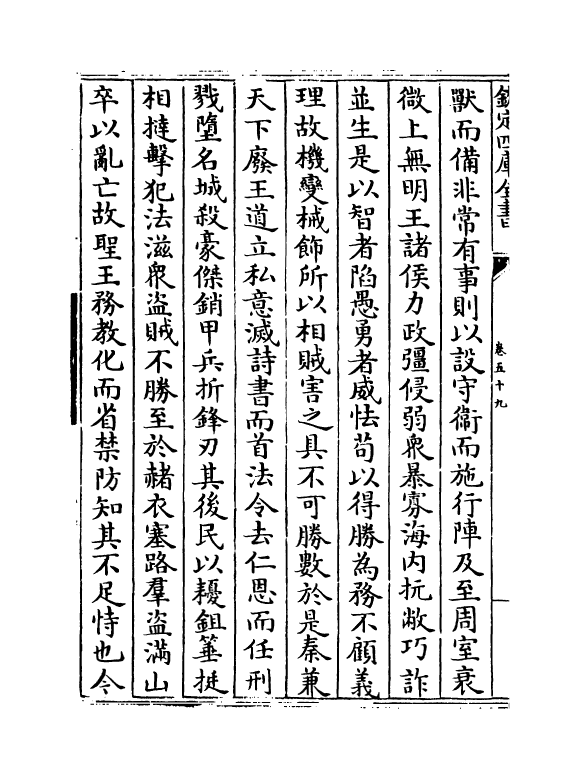 欽定四庫全書
卷五十九
獸而備非常有事則以設守衛而施行陣及至周室衰
微上無明王諸侯力政彊侵弱衆暴寡海内抏敝巧詐
並生是以智者陷愚勇者威怯苟以得勝為務不顧義
理故機變械飾所以相賊害之具不可勝數於是秦兼
天下廢王道立私意滅詩書而首法令去仁恩而任刑
戮墮名城殺豪傑銷甲兵折鋒刃其後民以耰鉏箠挺
相撻擊犯法滋衆盗賊不勝至於赭衣塞路羣盗滿山
卒以亂亡故聖王務教化而省禁防知其不足恃也今